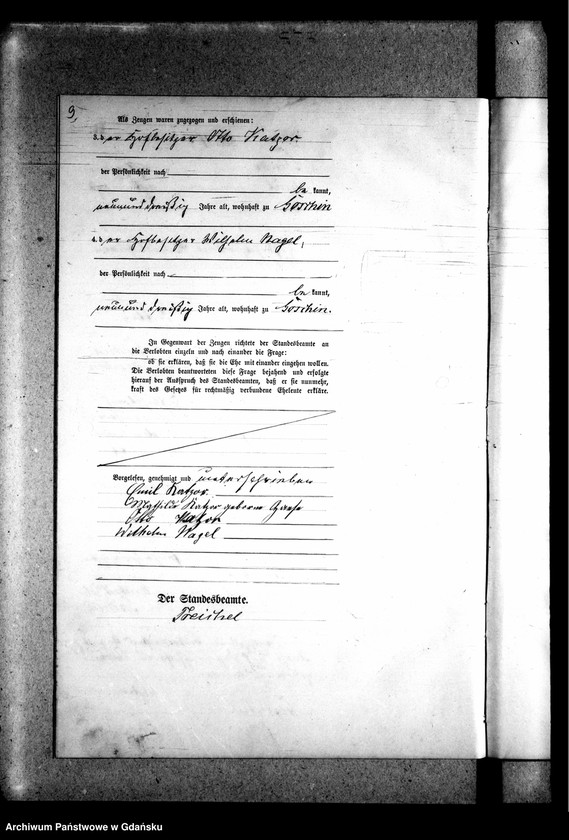 9,
Als Zeugen waren zugezogen und erschienen:
3. der Hofbesitzer Otto Katzor.
der Persönlichkeit nach
be kannt,
neunund dreißig Jahre alt, wohnhaft zu Goschin
4. der Hofbesitzer Wilhelm Nagel,
der Persönlichkeit nach
be kannt,
neunund dreißig Jahre alt, wohnhaft zu Goschin.
In Gegenwart der Zeugen richtete der Standesbeamte an
die Verlobten einzeln und nach einander die Frage:
ob sie erklären, daß sie die Ehe mit einander eingehen wollen.
Die Verlobten beantworteten diese Frage bejahend und erfolgte
hierauf der Ausspruch des Standesbeamten, daß er sie nunmehr,
kraft des Gesetzes für rechtmäßig verbundene Eheleute erkläre.
Vorgelesen, genehmigt und unterschrieben
Emil Katzor.
Mathilde Katzor geborene
Otto Katzor
Wilhelm Nagel
Der Standesbeamte.
Archiwum Państwowe w Gdańsku